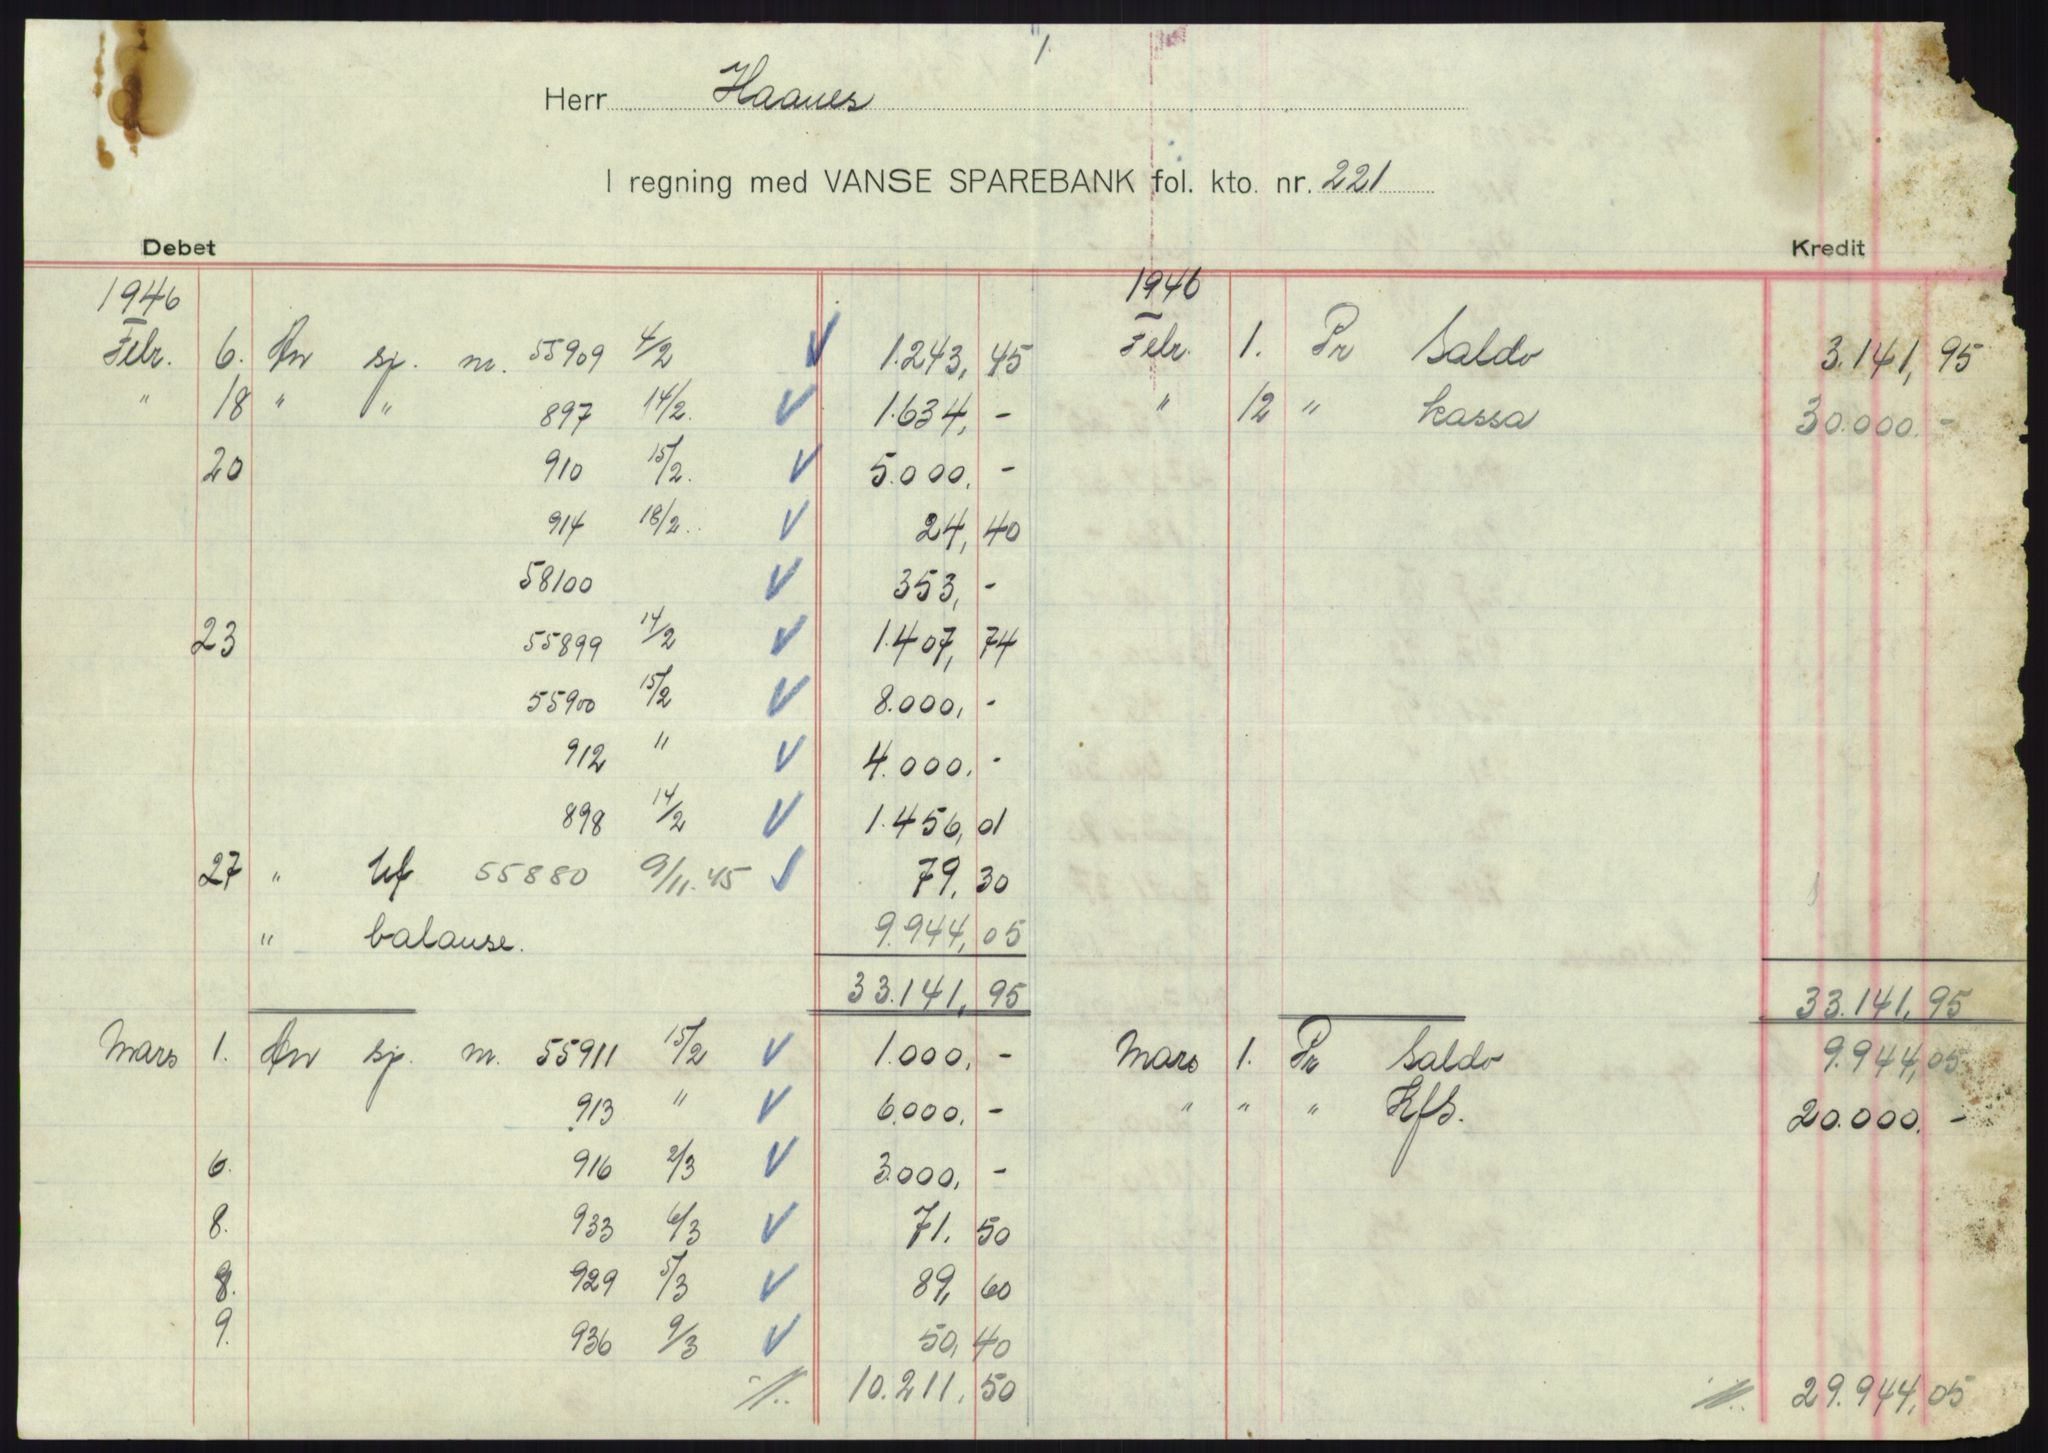 1
Herr Haanes
I regning med VANSE SPAREBANK fol. kto. nr. 221
Debet Kredit
1946 1946
Febr. 6. An sj. nr. 55909 4/2 1.243, 45 Febr. 1. Pr Saldo 3.141, 95
" 18 " " 897 14/2. 1.634, - " 12 " kassa 30.000. -
20 910 15/2. 5.000. -
914 18/2.. 24, 40
58100 353, -
23 55899 14/2 1.407, 74
55900 15/2 8.000, -
912 " 4.000. -
898 14/2 1.456, 01
27 " 55880 9/11.45 79, 30
" balanse. 9.944, 05
33.141, 95 33.141, 95
Mars 1. An sj. nr. 55911 15/2 1.000, - Mars 1. Pr Saldo 9.944, 05
913 " 6.000. - " " " 20.000. -
6. 916 2/3 3.000, -
8. 933 6/3 71. 50
8. 929 5/3 89, 60
9. 936 9/3 50, 40
10.211, 50 29.944, 05